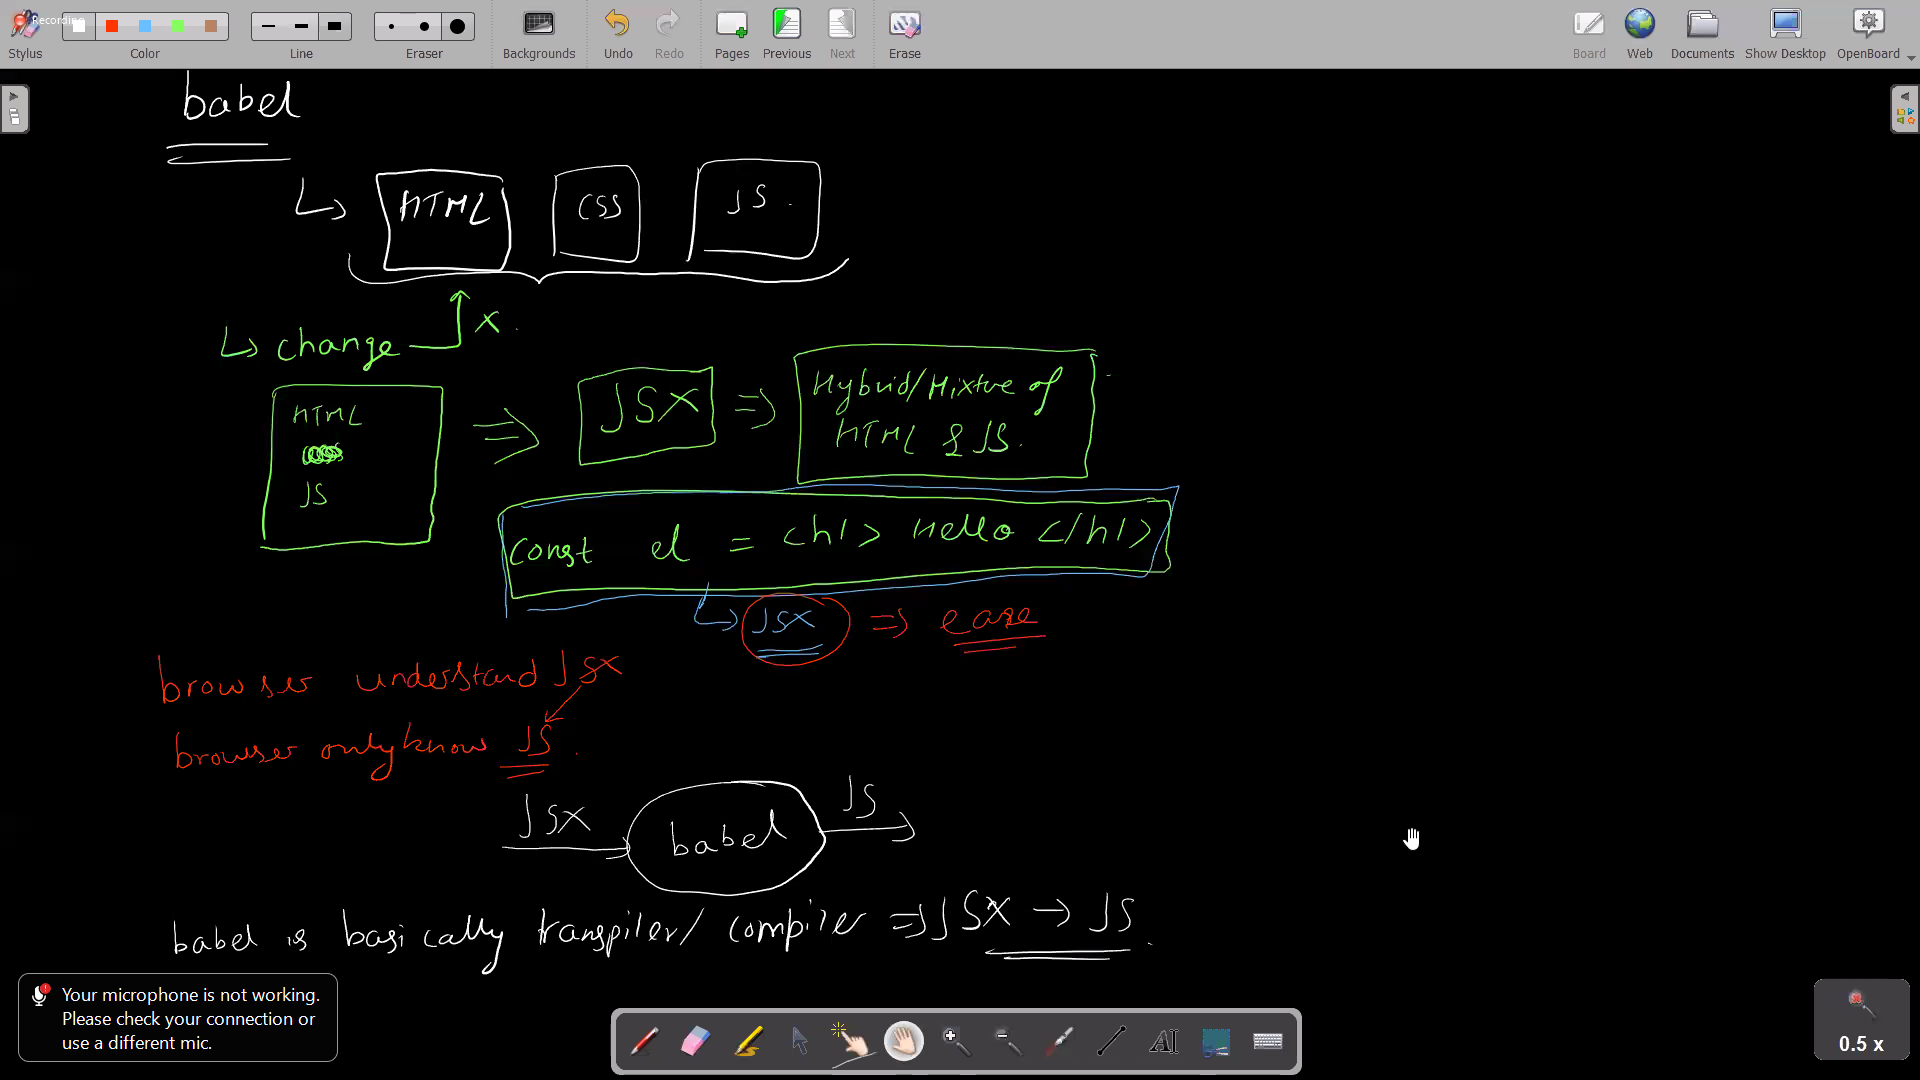 Recording
Stylus
Color
Line
Eraser
Backgrounds
Undo
Redo
Pages
Previous
Next
Erase
Board
Web
Documents
Show Desktop
OpenBoard
babel
HTML CSS JS.
change x.
HTML
JS
JSX
Hybrid/Mixture of
HTML & JS.
const el = <h1> Hello </h1>
JSX => ease
browser understand JSX
browser only know JS.
JSX babel JS
babel is basically transpiler/ compiler => JSX → JS.
Your microphone is not working.
Please check your connection or
use a different mic.
0.5 x